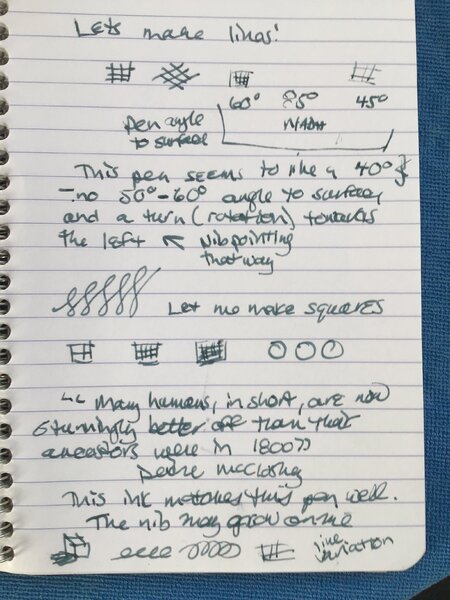 Lets make lines!
60° 85° 45°
Pen angle
to surface
This pen seems to like a 40°
no 50°-60° angle to surface
and a turn (rotation) towards
the left ↖ Nib pointing
that way
Let me make squares
"Many humans, in short, are now
stunningly better off than that
ancestors were in 1800"
Deirdre McCloskey
This ink matches this pen well.
The nib may grow on me
line
variation